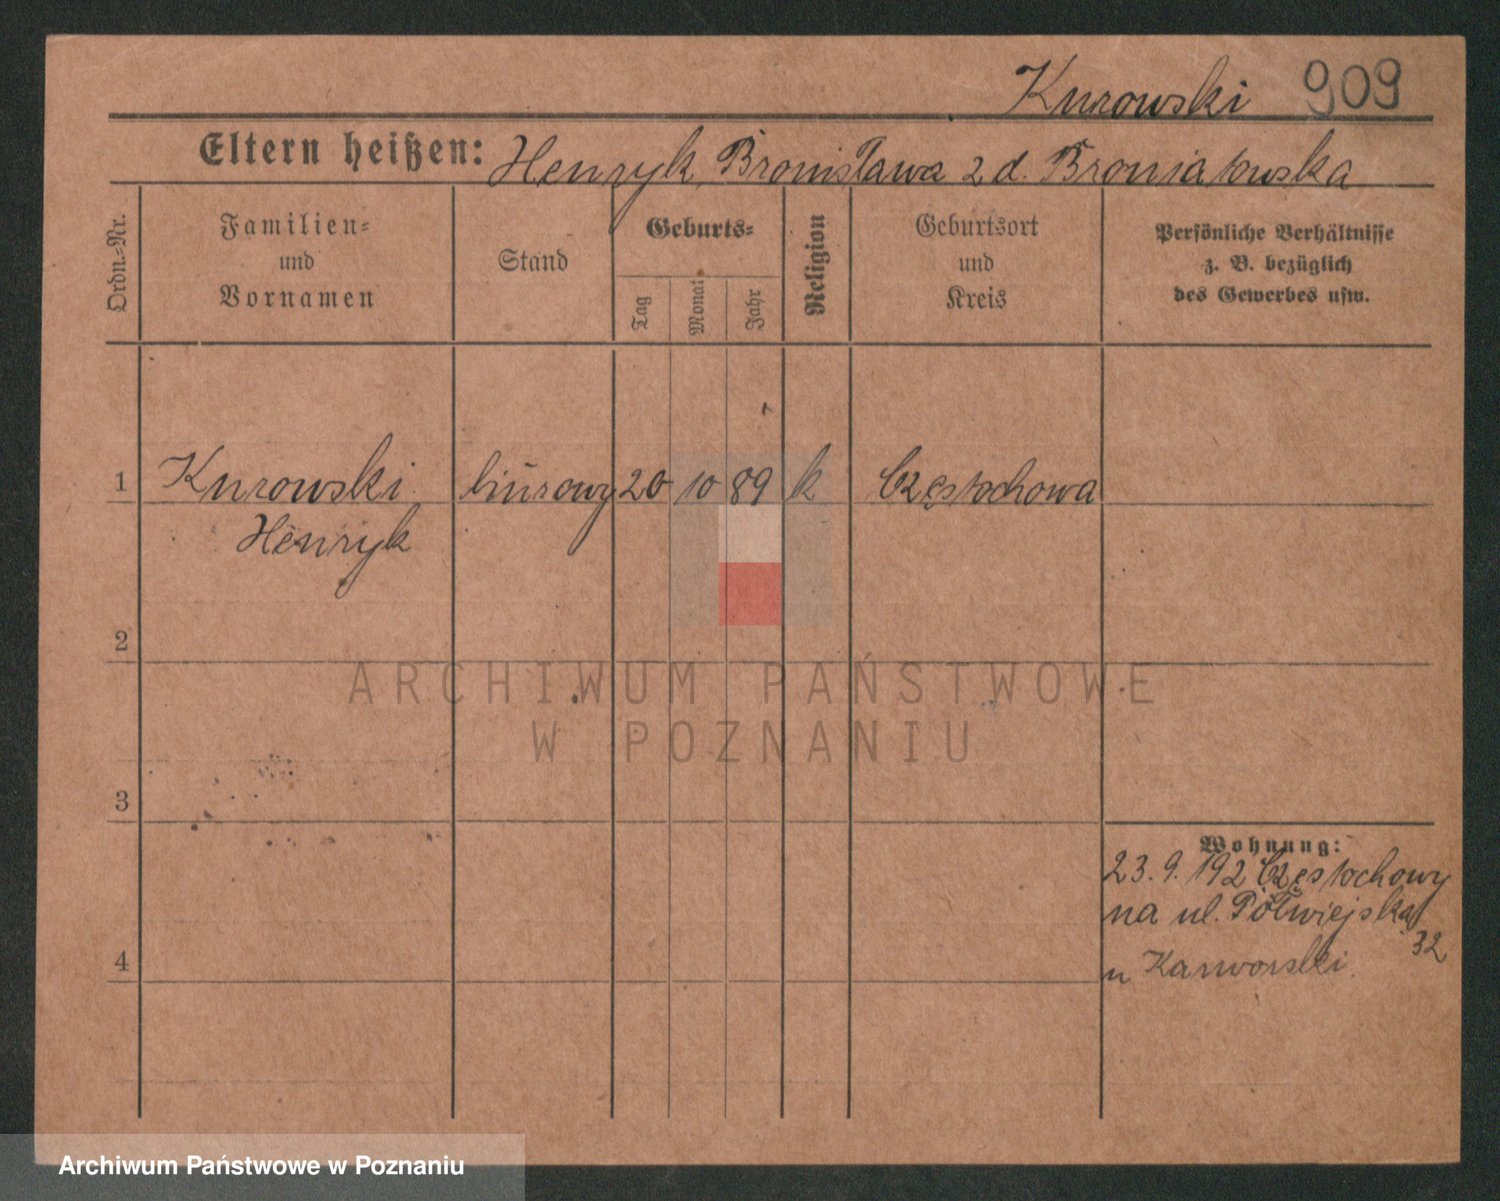 Kurowski 909
Eltern heißen: Henryk, Bronisława z d. Broniatowska
Ordn.-Nr.
Familien-
und
Vornamen
Stand
Geburts-
Tag
Monat
Jahr
Religion
Geburtsort
und
Kreis
Persönliche Verhältnisse
z. B. bezüglich
des Gewerbes usw.
1 Kurowski biurowy 20 10 89 k Częstochowa
Henryk
2
ARCHIWUM PAŃSTWOWE
W POZNANIU
3
Wohnung:
23.9.192 Częstochowy
na ul. Półwiejską
32
4
u
Archiwum Państwowe w Poznaniu